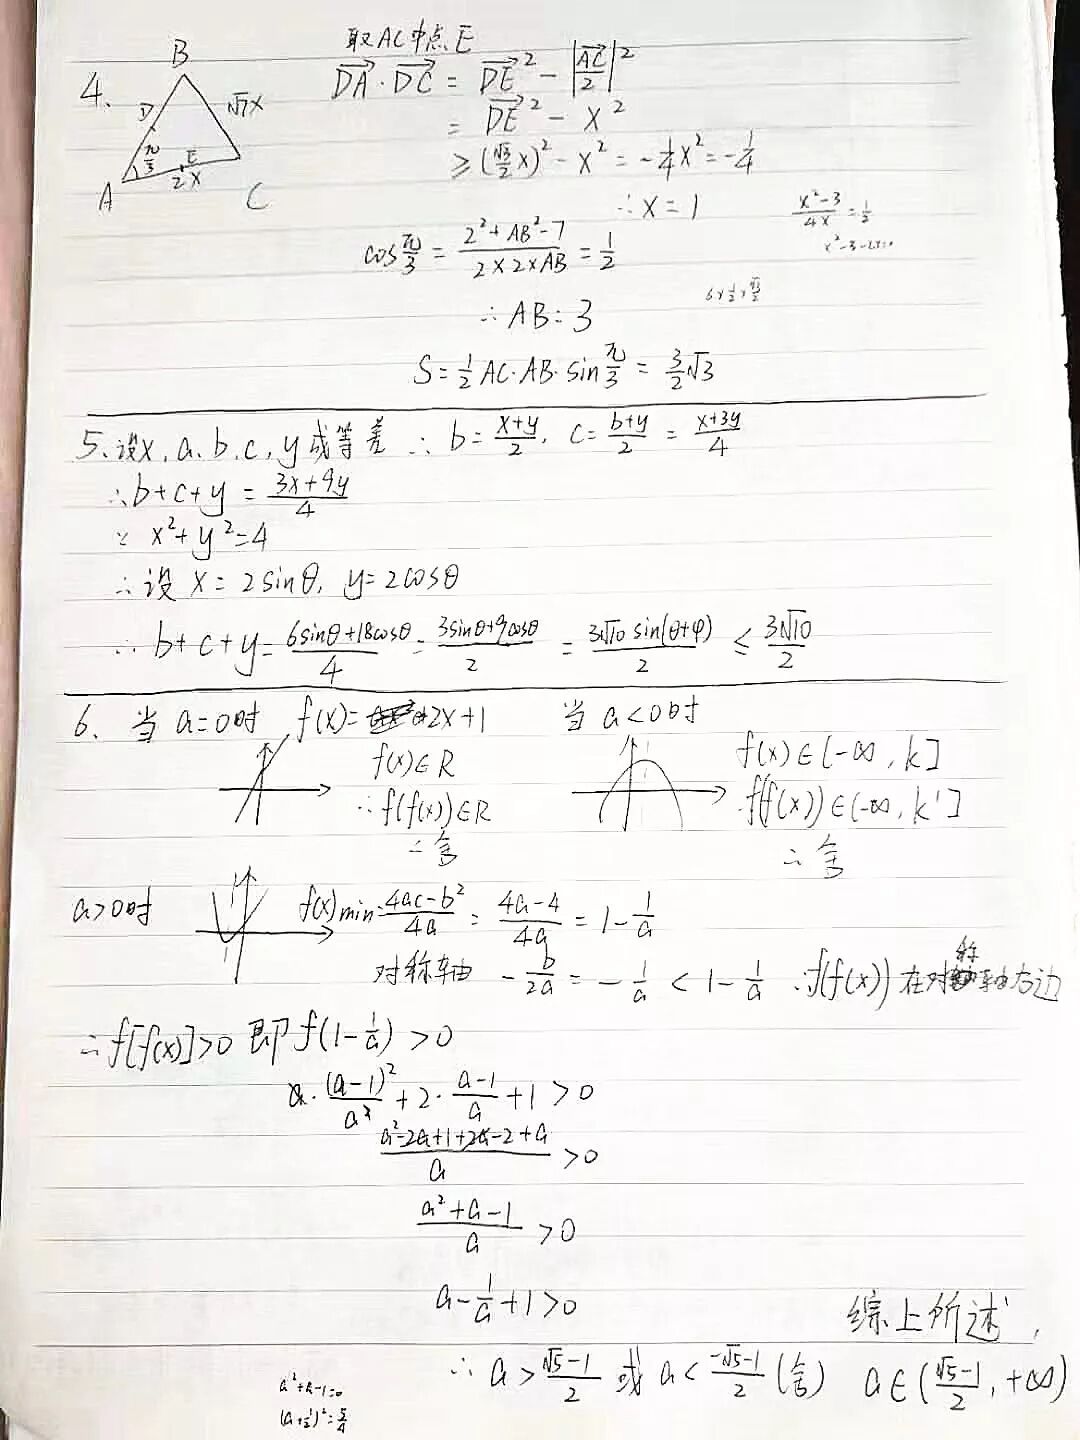 取AC中点E
4.
B
D
√7x
π/3
E
A
2x
C
DA·DC = DE² - |AC/2|²
= DE² - x²
≥ (√3/2 x)² - x² = -1/4 x² = -1/4
∴ x = 1
(x²-3)/4x = 1/2
cos π/3 = (2²+AB²-7)/(2×2×AB) = 1/2
6×1/2×√3/2
∴ AB = 3
S = 1/2 AC·AB·sin π/3 = 3/2 √3
5. 设x, a, b, c, y成等差 ∴ b = (x+y)/2, c = (b+y)/2 = (x+3y)/4
∴ b+c+y = (3x+9y)/4
∵ x²+y²=4
∴ 设 x = 2sinθ, y = 2cosθ
∴ b+c+y = (6sinθ+18cosθ)/4 = (3sinθ+9cosθ)/2 = 3√10 sin(θ+φ)/2 ≤ 3√10/2
6. 当 a=0时 f(x)= 2x+1
f(x)∈R
∴ f(f(x))∈R
∴ 舍
当 a<0时
f(x)∈(-∞, k]
f(f(x))∈(-∞, k']
∴ 舍
a>0时 f(x)min = (4ac-b²)/4a = (4a-4)/4a = 1-1/a
对称轴 -b/2a = -1/a < 1-1/a ∴ f(f(x)) 在对称轴右边
∴ f[f(x)]>0 即 f(1-1/a) > 0
a·(a-1)²/a² + 2·(a-1)/a + 1 > 0
(a²-2a+1+2a-2+a)/a > 0
(a²+a-1)/a > 0
a-1/a+1>0
综上所述,
∴ a > (√5-1)/2 或 a < (-√5-1)/2 (舍) a∈((√5-1)/2, +∞)
a²+a-1=0
(a+1/2)²=5/4